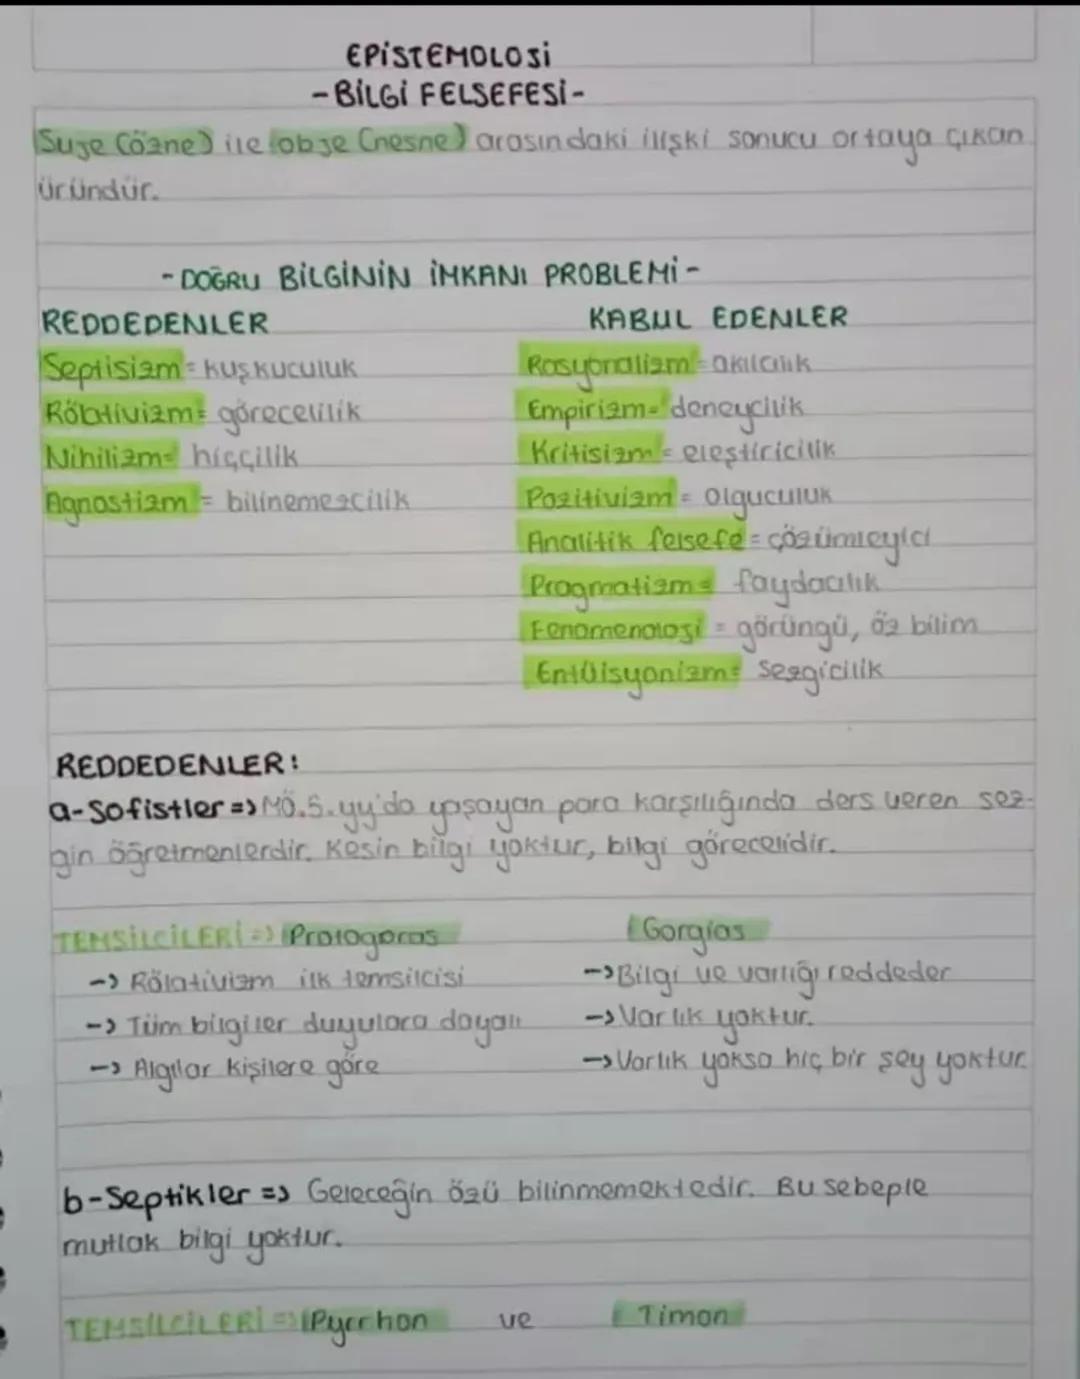 EPİSTEMOLOJİ
-BİLGİ FELSEFESİ-
Suje (özne) ile obje (nesne) arasındaki ilişki sonucu ortaya çıkan
üründür.
-DOĞRU BİLGİNİN İMKANI PROBLEMİ-
REDDEDENLER
KABUL EDENLER
Septisizm = kuşkuculuk
Rasyonalizm = akılcılık
Rölativizm = görecelilik
Empirizm = deneycilik
Nihilizm = hiççilik
Kritisizm = eleştiricilik
Agnostizm = bilinemezcilik
Pozitivizm = olguculuk
Analitik felsefe = çözümleyici
Pragmatizm = faydacılık
Fenomenoloji = görüngü, öz bilim
Entüisyonizm = sezgicilik
REDDEDENLER:
a-Sofistler => MÖ.5.yy'da yaşayan para karşılığında ders veren sez-
gin öğretmenlerdir. Kesin bilgi yoktur, bilgi görecelidir.
TEMSİLCİLERİ => Protogoras
Gorgias
-> Rölativizm ilk temsilcisi
-> Bilgi ve varlığı reddeder
-> Tüm bilgiler duyulara dayalı
-> Varlık yoktur.
-> Algılar kişilere göre
-> Varlık yoksa hiç bir şey yoktur.
b-Septikler => Geleceğin özü bilinmemektedir. Bu sebeple
mutlak bilgi yoktur.
TEMSİLCİLERİ => Pyrrhon ve Timon